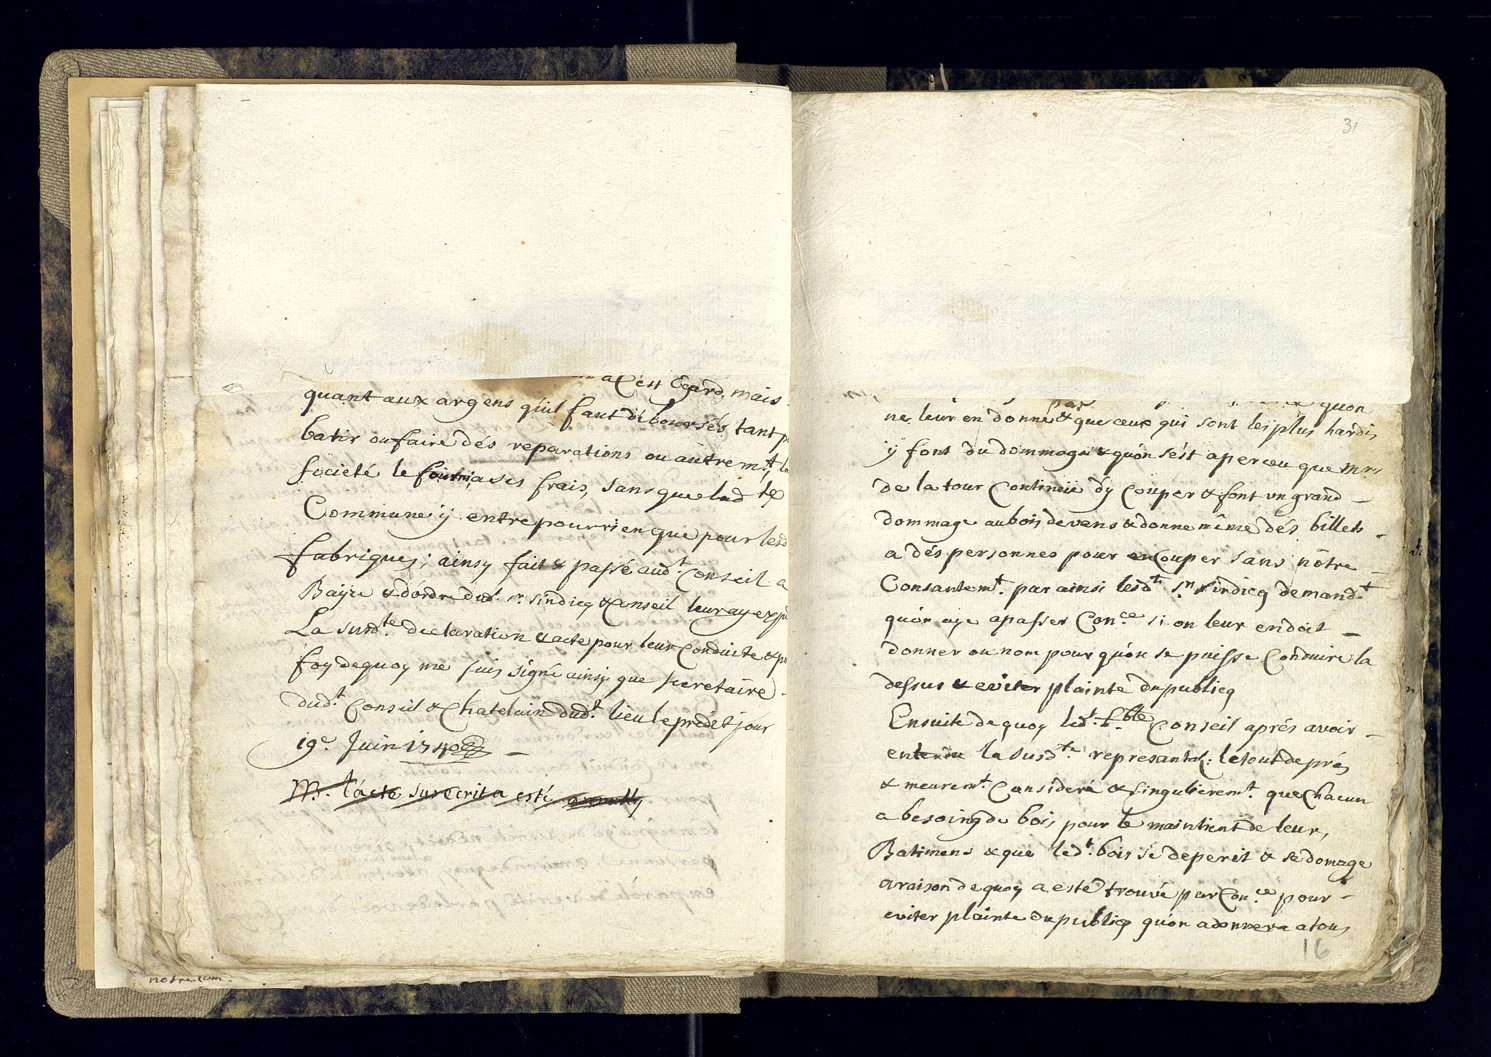 a C'est Egard, mais
quant aux argens qu'il faut dibourses tant p
batir ou faire dés reparations ou autrem.t la
societé le fourni a ses frais, sans que lad.te
Commune ÿ entre pour rien que pour lesd
fabriques; ainsy fait & passé aud.t Conseil a
Bayze & d'ordre dud.t sr. sindicq & Conseil leur ay exp
La susd.te declaration & acte pour leur Conduite & p
foy de quoy me suis signé ainsy que secretaire
dud.t Conseil & Chatelain dud.t lieu le prédt jour
19.e Juin 1740
M.r l'acte sus Ecrit a esté
31
quon
ne leur en donne pas & que ceux qui sont les plus hardis
ÿ font du dommage & qu'on sést aperceu que Mrs
de la tour Continüe d'y Couper & font un grand
dommage au bois devens & donne même dés billets
a dés personnes pour en Couper sans nôtre
Consantem.t par ainsi lesd.ts Srs Sindicq demand.t
qu'on aye a passer Con.ce si on leur en doit
donner ou nom pour qu'on se puisse Conduire la
dessus & eviter plainte du publicq
Ensuite de quoy led.t Conseil aprés avoir
entendu la susd.te represant.n le tout de prés
& meurem.t Consideré & singulierem.t que Chacun
a besoing de bois pour le maintient de leur,
Batimens & que led.t bois se deperit & se domage
a raison de quoy a esté trouvé par Con.ce pour
eviter plainte du publicq qu'on adonnera a tous
16
notre